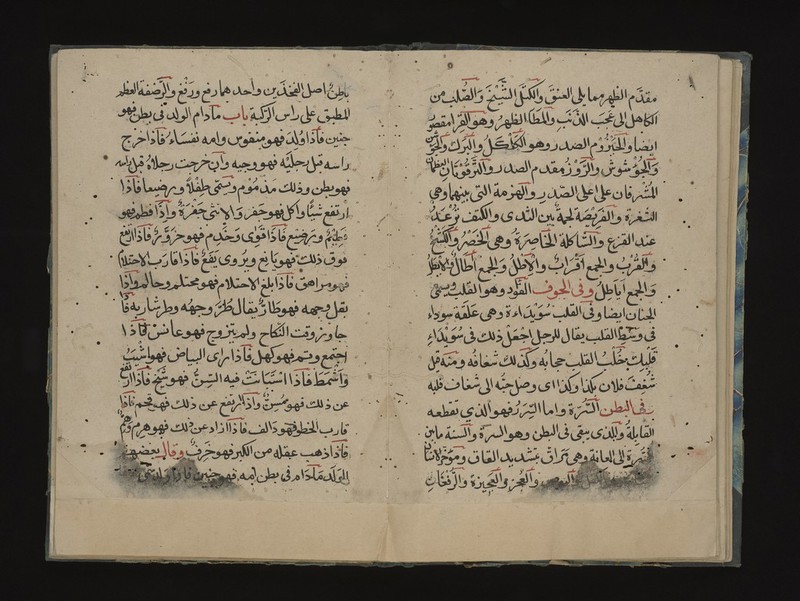 مقدم الظهر مما يلى العنق والكتد الثبج والصلب من
الكاهل الى عجب الذنب والمطا الظهر وهو القرا مقصور
ايضا والحيزوم الصدر وهو الكلكل والبرك والجوش
والجؤشوش والزور مقدم الصدر والترقوتان العظمان
المشرفان على اعلى الصدر والهزمة التى بينهما وهى
الثغرة والفريصة لحمة بين الثدى والكتف ترعد
عند الفزع والشاكلة الخاصرة وهى الخصر والكشح
والقرب والجمع اقراب والاطل والجمع اطال والايطل
والجمع اياطل وفى الجوف الفؤاد وهو القلب ويسمى
الجنان ايضا وفى القلب سويداءه وهى علقة سوداء
فى وسط القلب يقال للرجل اجعل ذلك فى سويداء
قلبك وخلب القلب حجابه وكذلك شغافه ومنه قيل
شغف فلان بكذا وكذا اى وصل حبه الى شغاف قلبه
وفى البطن السرة واما السرر فهو الذى تقطعه
القابلة والذى يبقى فى البطن وهو السرة والسنة ما بين
السرة الى العانة وهى مراق بتشديد القاف ومؤخر
والعجز والعجيزة والرفغان
باطن اصل الفخذين واحدهما رفع ورفغ والرضفة العظم
المطبق على راس الركبة باب مادام الولد فى بطن فهو
جنين فاذا ولد فهو منفوس وامه نفساء فاذا خرج
راسه قبل رجليه فهو وجيه وان خرجت رجلاه قبل راسه
فهو يطن وذلك مذموم ويسمى طفلا ورضيعا فاذا
ارتفع شيئا واكل فهو جفر والانثى جفرة واذا فطم فهو
فطيم ورضيع فاذا قوى وخدم فهو حزور فاذا ارتفع
فوق ذلك فهو يافع ويروى يفع فاذا قارب الاحتلام
فهو مراهق فاذا بلغ الاحتلام فهو محتلم وحالم واذا
بقل وجهه فهو طار يقال طر وجهه وطر شاربه فاذا
جاوز وقت النكاح ولم يتزوج فهو عانس فاذا
اجتمع وتم فهو كهل فاذا راى البياض فهو اشيب
واشمط فاذا استبانت فيه السن فهو شيخ فاذا ارتفع
عن ذلك فهو مسن واذا ارتفع عن ذلك فهو قحم فاذا
قارب الخطو فهو دالف فاذا زاد عن ذلك فهو هرم وهم
فاذا ذهب عقله من الكبر فهو خرف وقال بعضهم
الولد مادام فى بطن امه فهو جنين فاذا ولد سمى